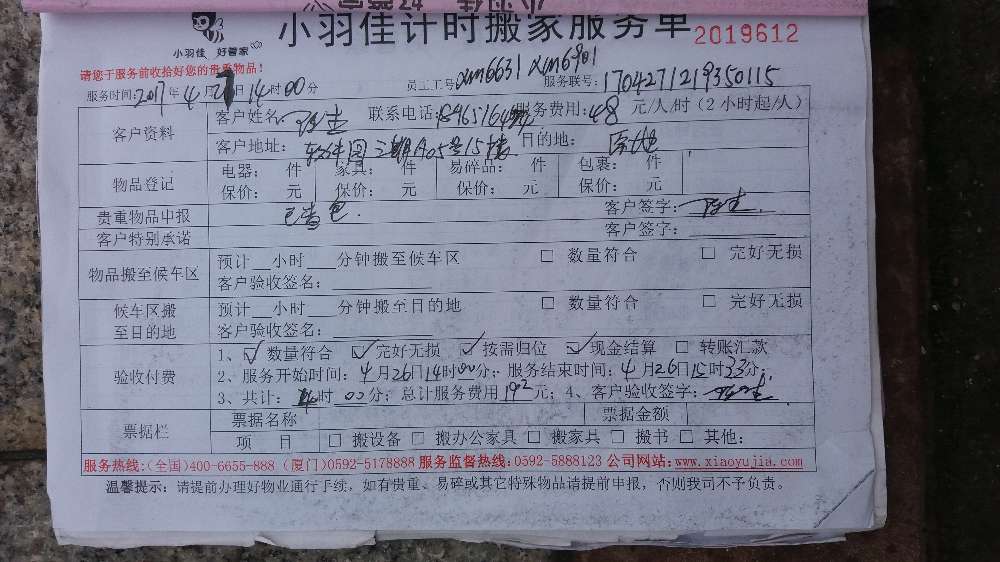 小羽佳 好管家
小羽佳计时搬家服务单 2019612
请您于服务前收拾好您的贵重物品!
服务时间: 2017年4月27日14时00分 员工工号 xm6631 xm6901 服务联号: 1704271219350115
客户资料
客户姓名: 联系电话: 服务费用: 48 元/人/时 (2小时起/人)
客户地址: 软件园三期A05号15楼 目的地: 原地
物品登记
电器: 件 家具: 件 易碎品: 件 包裹: 件
保价: 元 保价: 元 保价: 元 保价: 元
贵重物品申报 已查包. 客户签字:
客户特别承诺 客户签字:
物品搬至候车区
预计__小时__分钟搬至候车区 □ 数量符合 □ 完好无损
客户验收签名:
候车区搬至目的地
预计__小时__分钟搬至目的地 □ 数量符合 □ 完好无损
客户验收签名:
验收付费
1、☑ 数量符合 ☑ 完好无损 ☑ 按需归位 ☑ 现金结算 □ 转账汇款
2、服务开始时间: 4月26日14时00分; 服务结束时间: 4月26日15时33分;
3、共计: 时00分; 总计服务费用192元; 4、客户验收签字:
票据栏
票据名称 票据金额
项 目 □ 搬设备 □ 搬办公家具 □ 搬家具 □ 搬书 □ 其他:
服务热线:(全国)400-6655-888 (厦门)0592-5178888 服务监督热线:0592-5888123 公司网站:www.xiaoyujia.com
温馨提示: 请提前办理好物业通行手续, 如有贵重、易碎或其它特殊物品请提前申报, 否则我司不予负责。